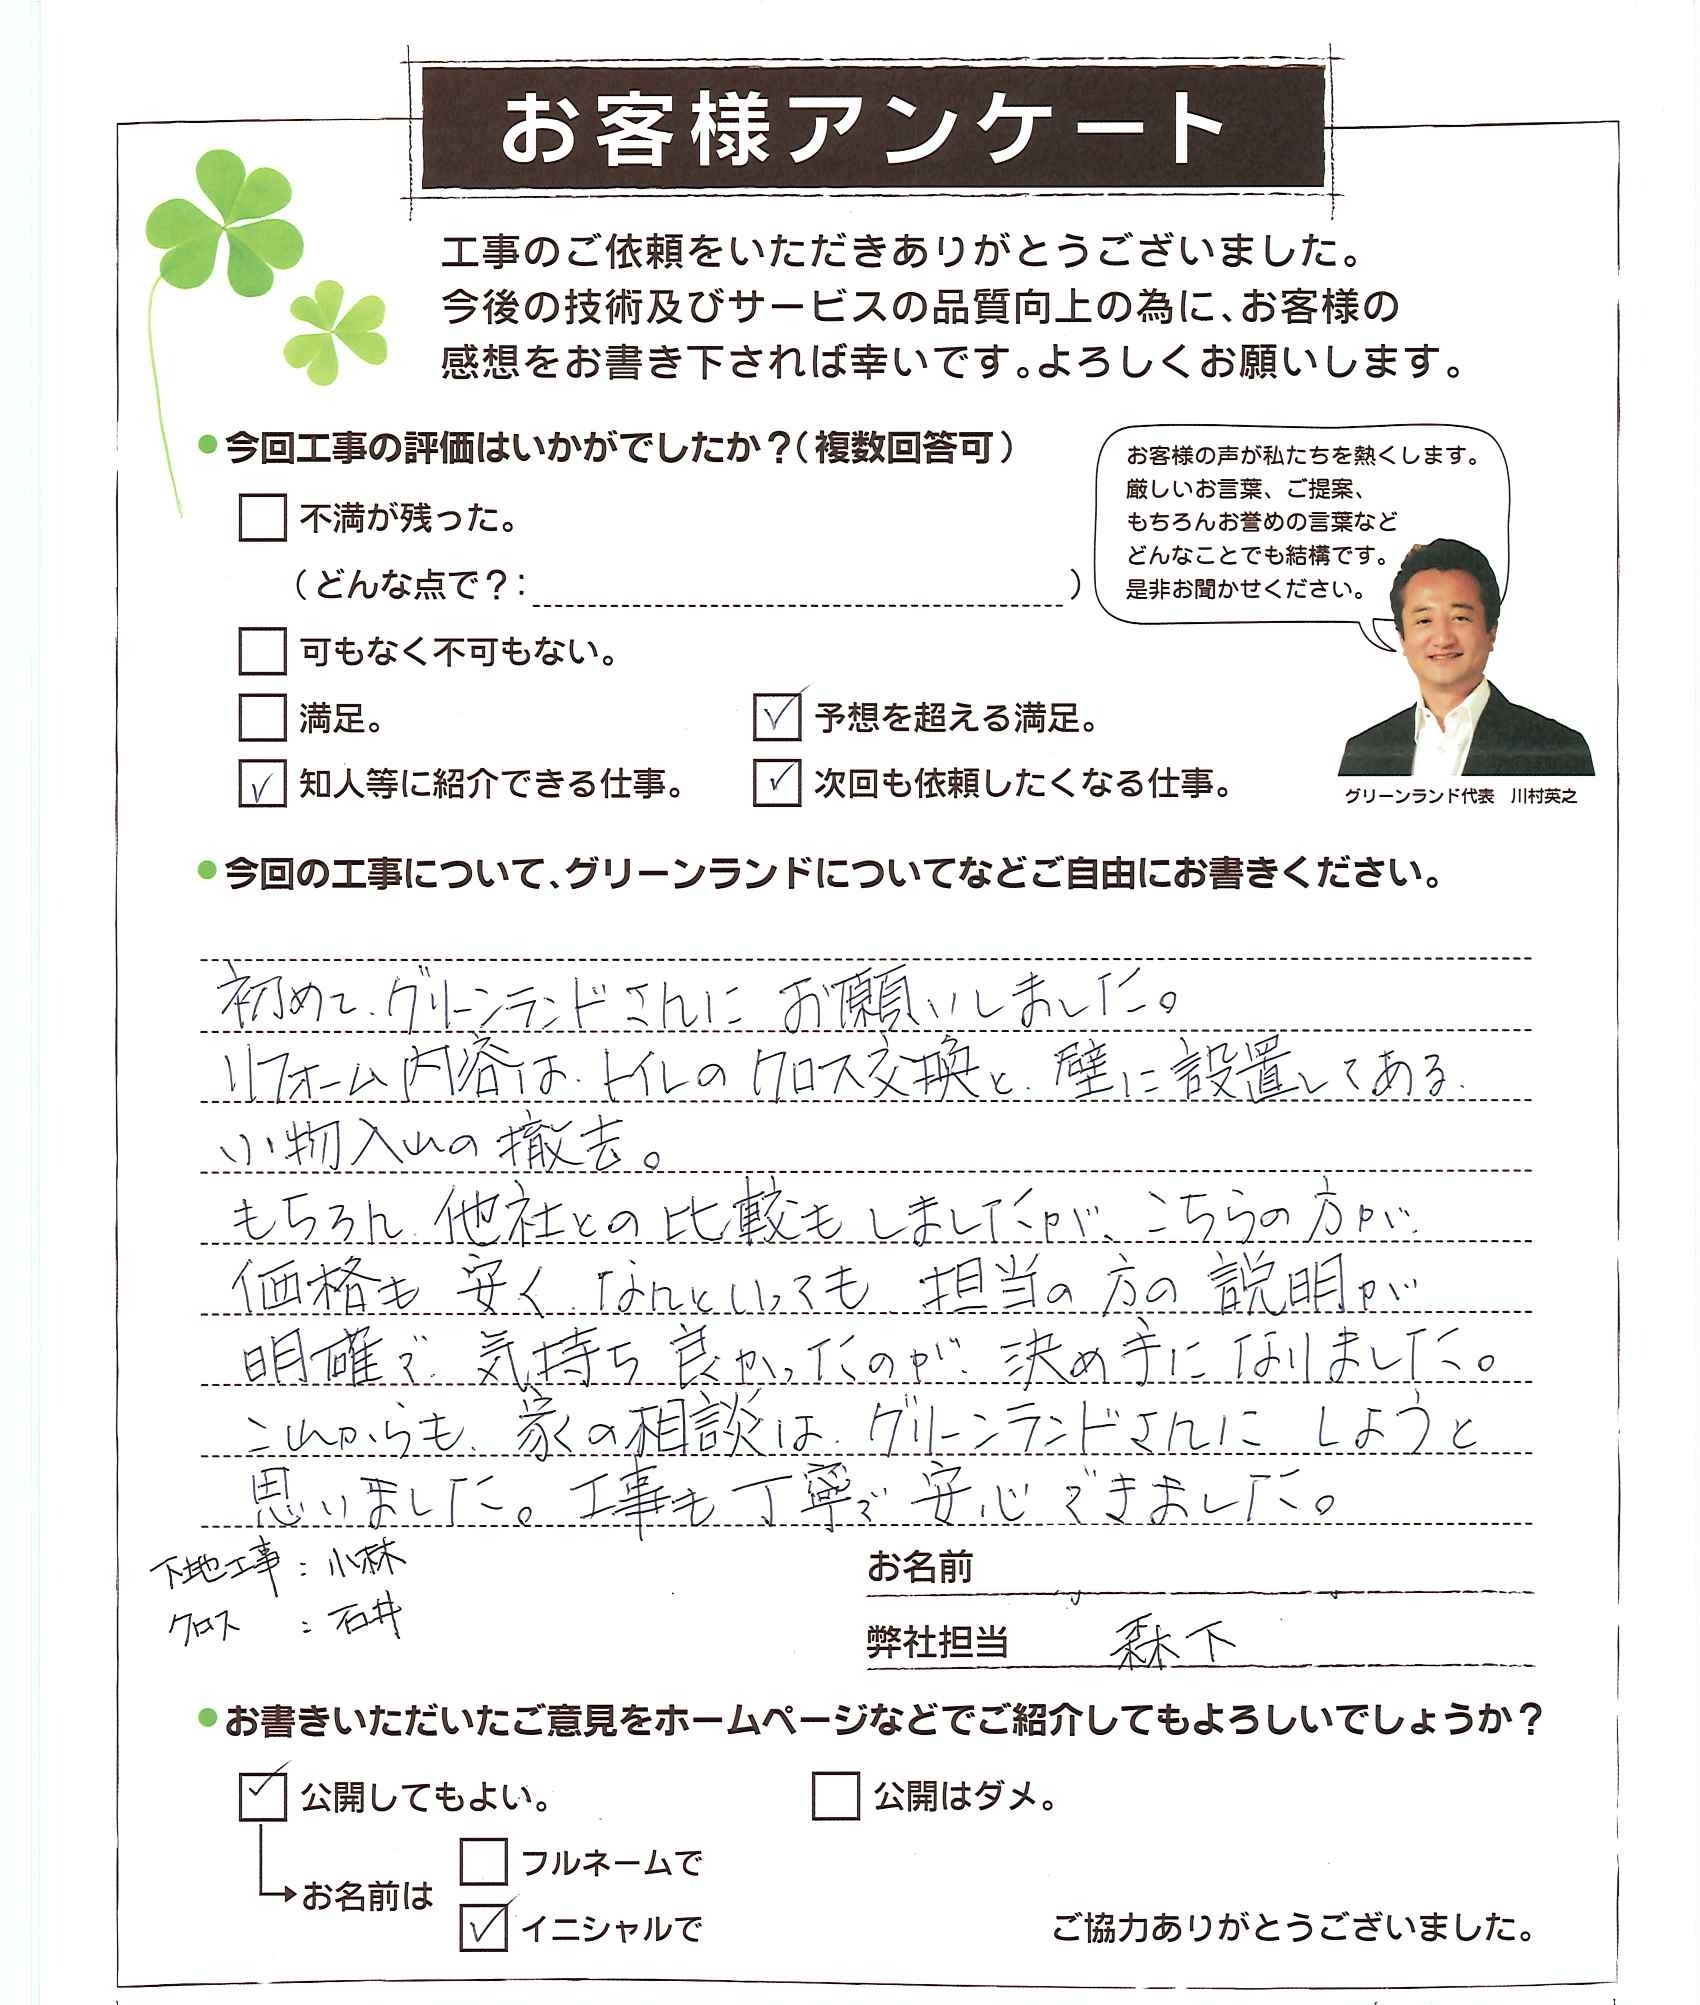 お客様アンケート
工事のご依頼をいただきありがとうございました。
今後の技術及びサービスの品質向上の為に、お客様の
感想をお書き下されば幸いです。よろしくお願いします。
●今回工事の評価はいかがでしたか？（複数回答可）
不満が残った。
（どんな点で？：　　）
可もなく不可もない。
満足。
✓ 予想を超える満足。
✓ 知人等に紹介できる仕事。
✓ 次回も依頼したくなる仕事。
お客様の声が私たちを熱くします。
厳しいお言葉、ご提案、
もちろんお誉めの言葉など
どんなことでも結構です。
是非お聞かせください。
グリーンランド代表　川村英之
●今回の工事について、グリーンランドについてなどご自由にお書きください。
初めて、グリーンランドさんに お願いしました。
リフォーム内容は、トイレのクロス交換と、壁に設置してある、
小物入れの撤去。
もちろん、他社との比較もしましたが、こちらの方が、
価格も 安く、なんといっても、担当の方の説明が
明確で、気持ち良かったのが、決め手になりました。
これからも、家の相談は、グリーンランドさんに しようと
思いました。工事も丁寧で 安心できました。
下地工事：小林
クロス　：石井
お名前
弊社担当　森下
●お書きいただいたご意見をホームページなどでご紹介してもよろしいでしょうか？
✓ 公開してもよい。
公開はダメ。
お名前は
フルネームで
✓ イニシャルで
ご協力ありがとうございました。